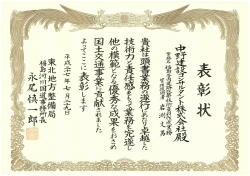 表彰状
中野建設コンサルタント株式会社殿
貴社は頭書業務の遂行にあたり卓越した
技術力と責任感をもって業務を完遂し
他の模範となる優秀な成果をおさめ
国土交通事業に貢献されました
よってここに表彰します
平成二十七年七月二十九日
東北地方整備局
福島河川国道事務所長
永尾慎一郎